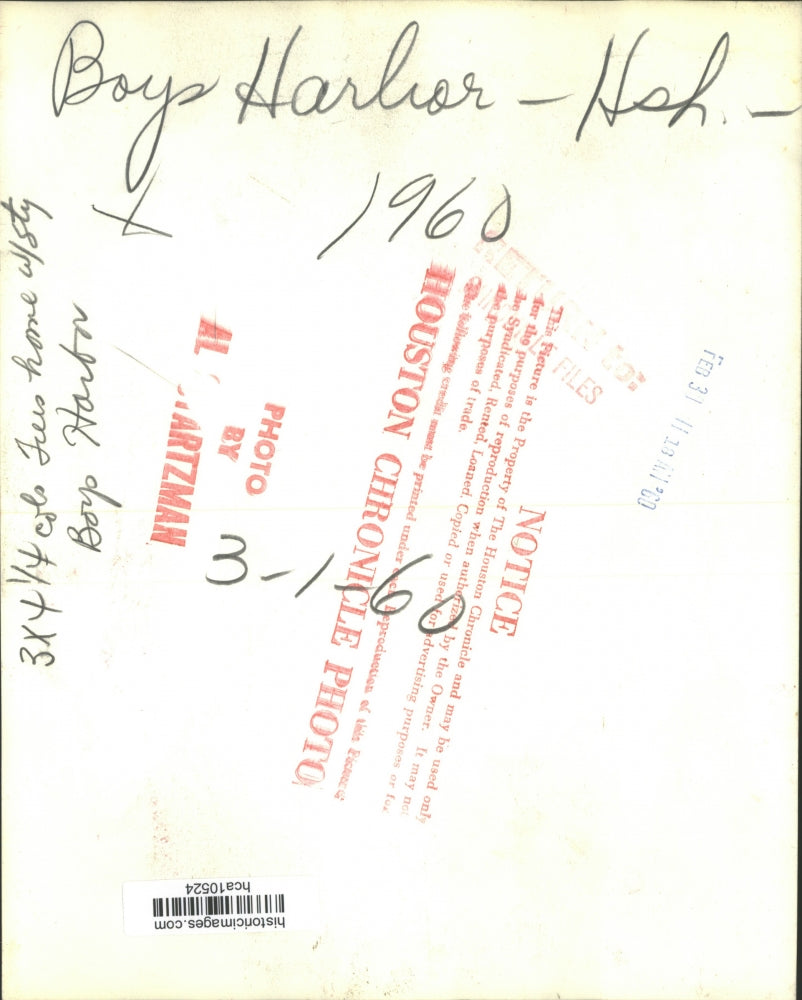 Boys Harbor - Hsh. -
1960
3 X 4 1/4 cols home w/sty
Boys Harbor
PHOTO
BY
AL
ARTZMAN
3-1-60
NOTICE
This Picture is the Property of The Houston Chronicle and may be used only
for the purposes of reproduction when authorized by the Owner. It may not
be Syndicated, Rented, Loaned, Copied or used for advertising purposes or for
the purposes of trade.
The following credit must be printed under each Reproduction of this Picture
HOUSTON CHRONICLE PHOTO
FILES
FEB 31 11 23 AM '60
historicimages.com
hca10524